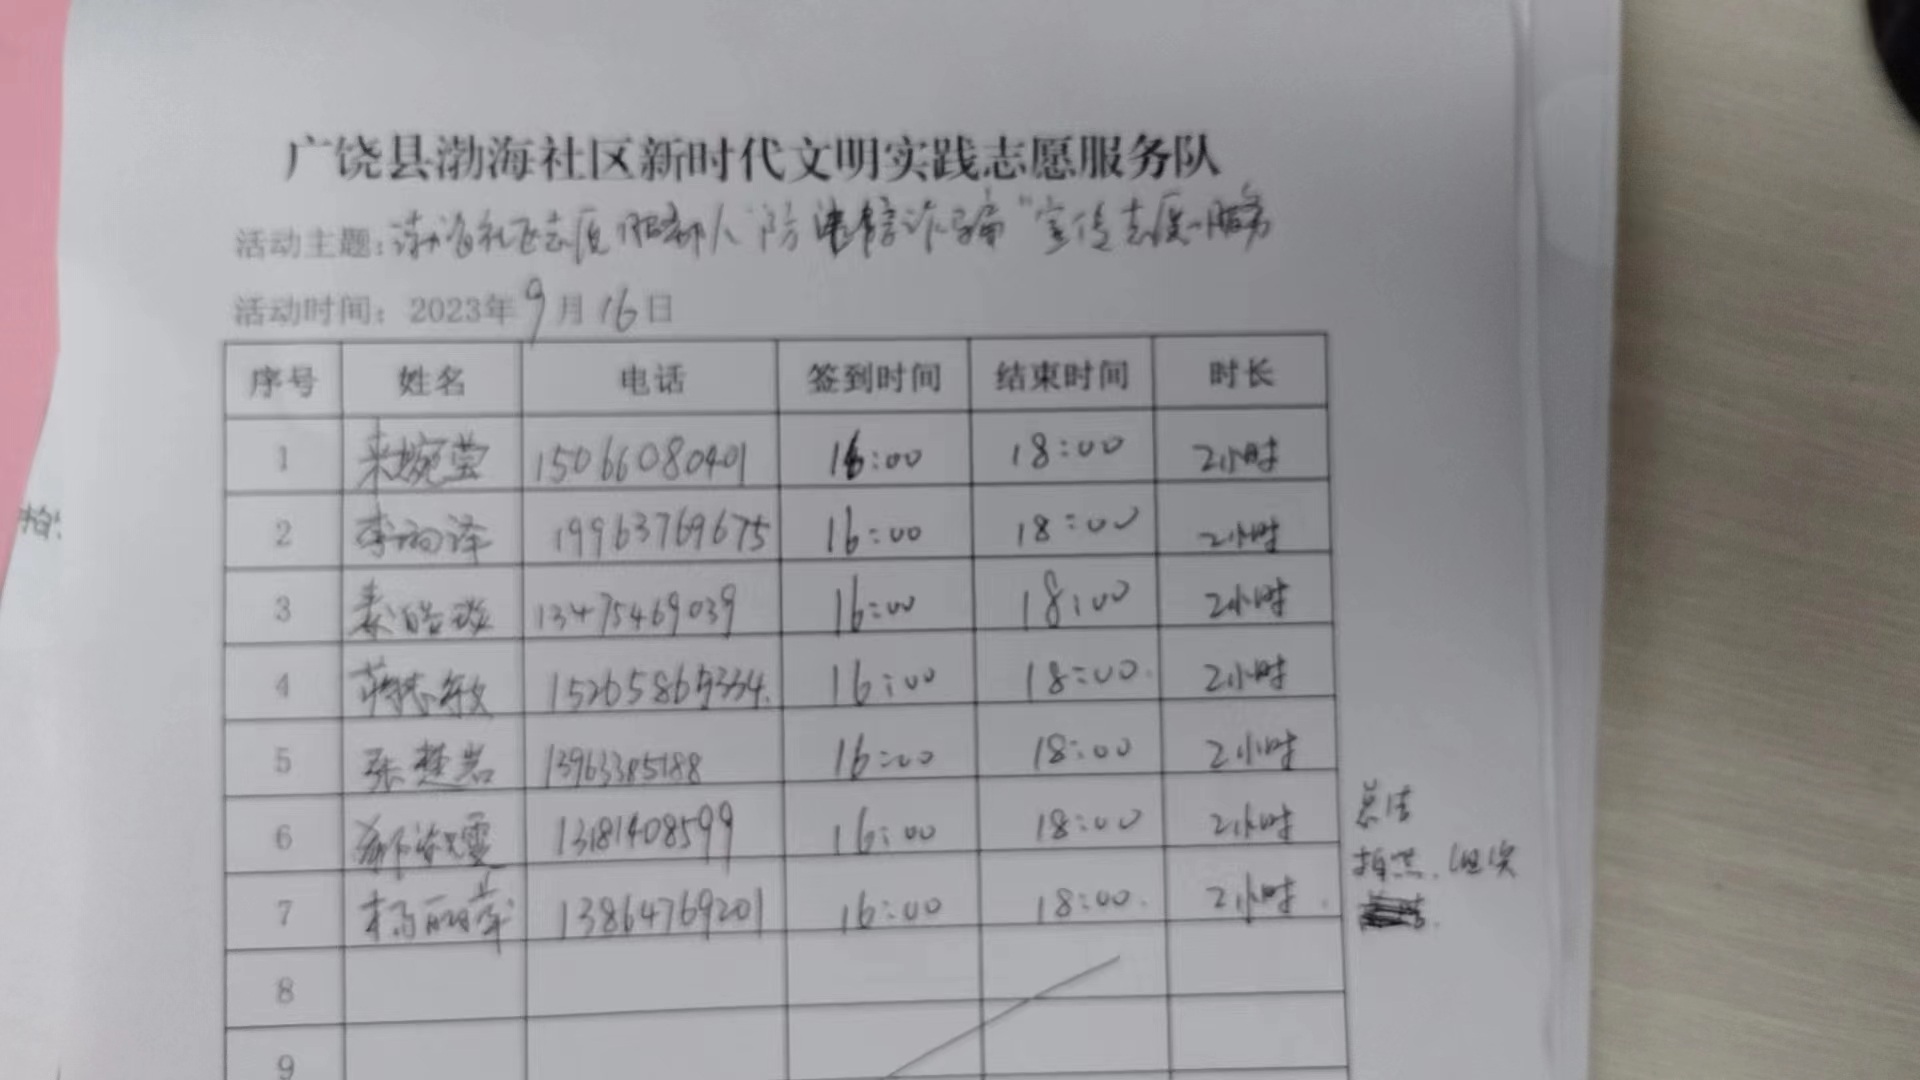 广饶县渤海社区新时代文明实践志愿服务队
活动主题:渤海社区志愿服务队"防电信诈骗"宣传志愿服务
活动时间: 2023年9月16日
序号 姓名 电话 签到时间 结束时间 时长
1 来婉莹 15066080401 16:00 18:00 2小时
2 李雨泽 19963769675 16:00 18:00 2小时
3 13475469039 16:00 18:00 2小时
4 蒋志敏 15265865334 16:00 18:00 2小时
5 张楚岩 13963385188 16:00 18:00 2小时
6 13181408599 16:00 18:00 2小时
7 杨丽萍 13864769201 16:00 18:00 2小时
8
9
总结
拍照